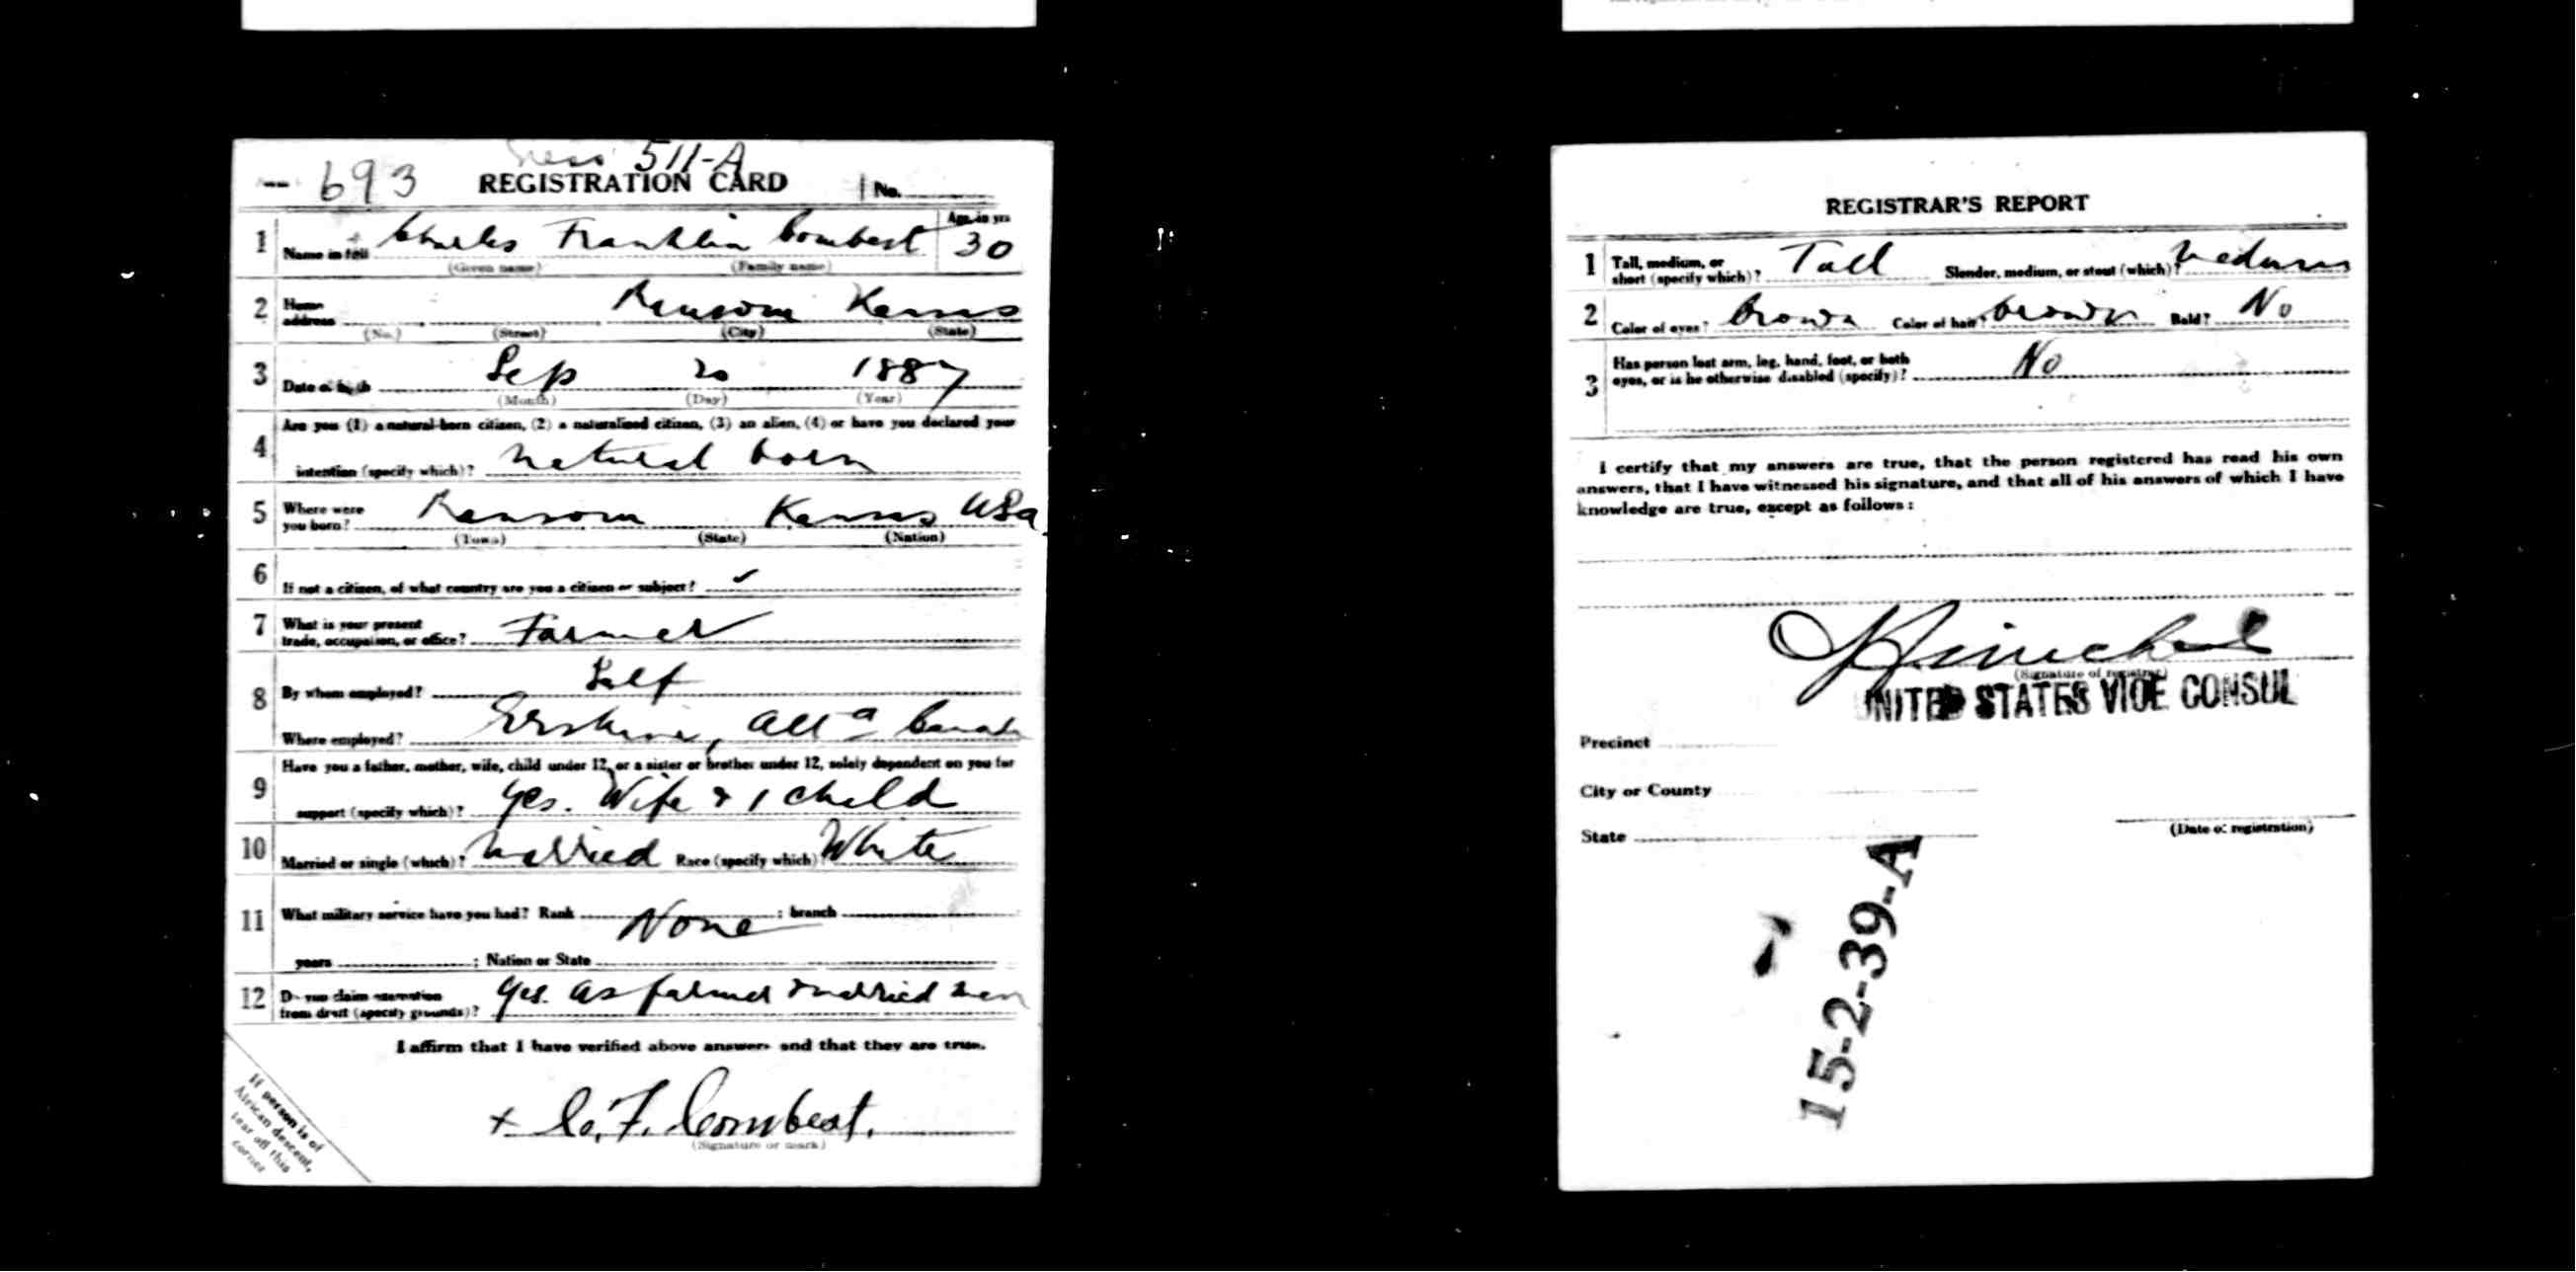 Ness 511-A
693 REGISTRATION CARD No.
1 Name in full Charles Franklin Combest Age, in yrs 30
(Given name) (Family name)
2 Home address Ransom Kansas
(No.) (Street) (City) (State)
3 Date of birth Sep 20 1887
(Month) (Day) (Year)
4 Are you (1) a natural-born citizen, (2) a naturalized citizen, (3) an alien, (4) or have you declared your
intention (specify which)? natural born
5 Where were you born? Ransom Kansas USA
(Town) (State) (Nation)
6 If not a citizen, of what country are you a citizen or subject? ✓
7 What is your present
trade, occupation, or office? Farmer
8 By whom employed? Self
Where employed? Erskine, Alta Canada
9 Have you a father, mother, wife, child under 12, or a sister or brother under 12, solely dependent on you for
support (specify which)? Yes. Wife & 1 child
10 Married or single (which)? Married Race (specify which)? White
11 What military service have you had? Rank None ; branch
years ; Nation or State
12 Do you claim exemption
from draft (specify grounds)? Yes. as farmer & married man
I affirm that I have verified above answers and that they are true.
+ C. F. Combest.
(Signature or mark)
If person is of
African descent,
tear off this
corner
REGISTRAR'S REPORT
1 Tall, medium, or
short (specify which)? Tall Slender, medium, or stout (which)? Medium
2 Color of eyes? Brown Color of hair? brown Bald? No
3 Has person lost arm, leg, hand, foot, or both
eyes, or is he otherwise disabled (specify)? No
I certify that my answers are true, that the person registered has read his own
answers, that I have witnessed his signature, and that all of his answers of which I have
knowledge are true, except as follows:
(Signature of registrar)
UNITED STATES VICE CONSUL
Precinct
City or County
State
(Date of registration)
15-2-39-A